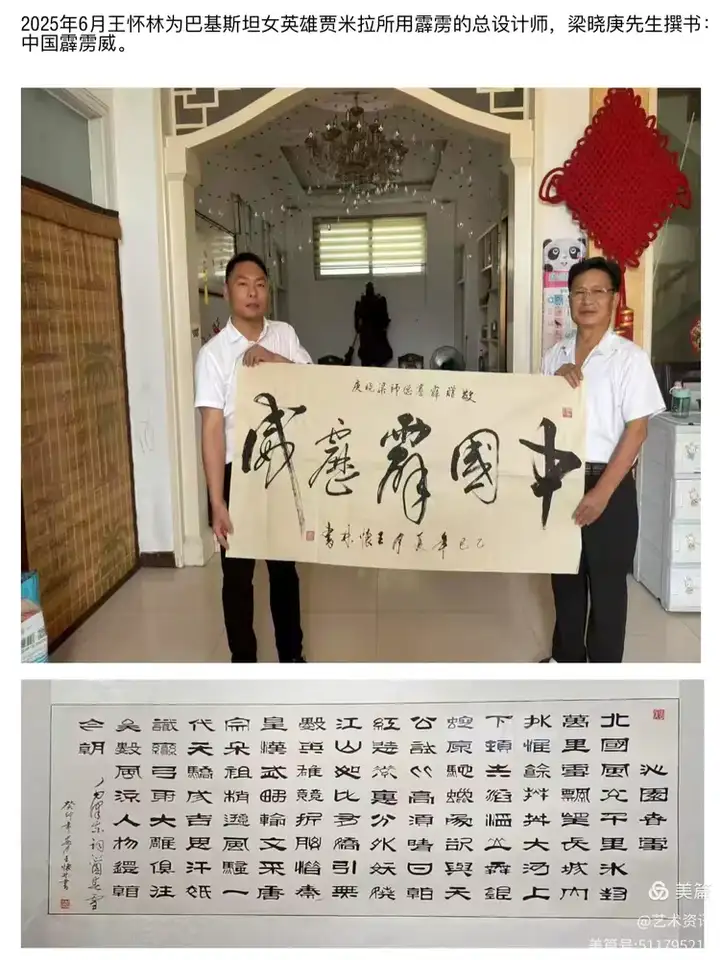 2025年6月王怀林为巴基斯坦女英雄贾米拉所用霹雳的总设计师，梁晓庚先生撰书：
中国霹雳威。
敬贈霹靂總师梁晓庚
中國霹靂威
乙巳年夏月王懷林書
沁園春雪
北國風光千里冰封
萬里雪飄望長城内
外惟餘莽莽大河上
下頓失滔滔山舞銀
蛇原馳蠟象欲與天
公試比高須晴日看
紅裝素裹分外妖嬈
江山如此多嬌引無
數英雄競折腰惜秦
皇漢武略輸文采唐
宗宋祖稍遜風騷一
代天驕成吉思汗祇
識彎弓射大雕俱往
矣數風流人物還看
今朝
毛澤東詞沁園春雪
美篇
@艺术资
美篇号:51179521